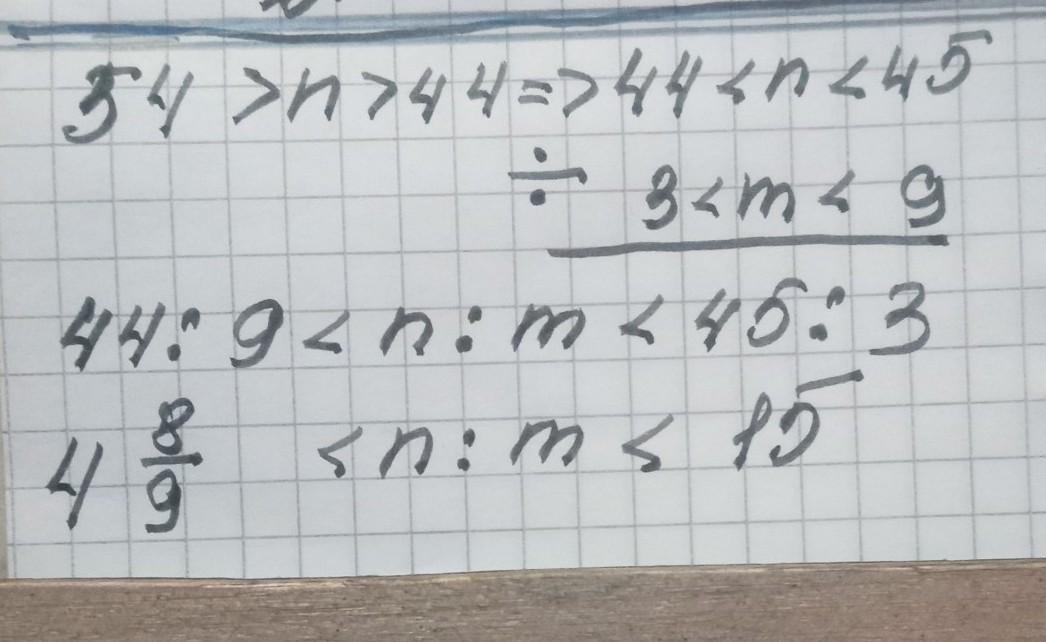 54 > n > 44 => 44 < n < 45
÷ 3 < m < 9
44 : 9 < n : m < 45 : 3
4 8/9 < n : m < 15